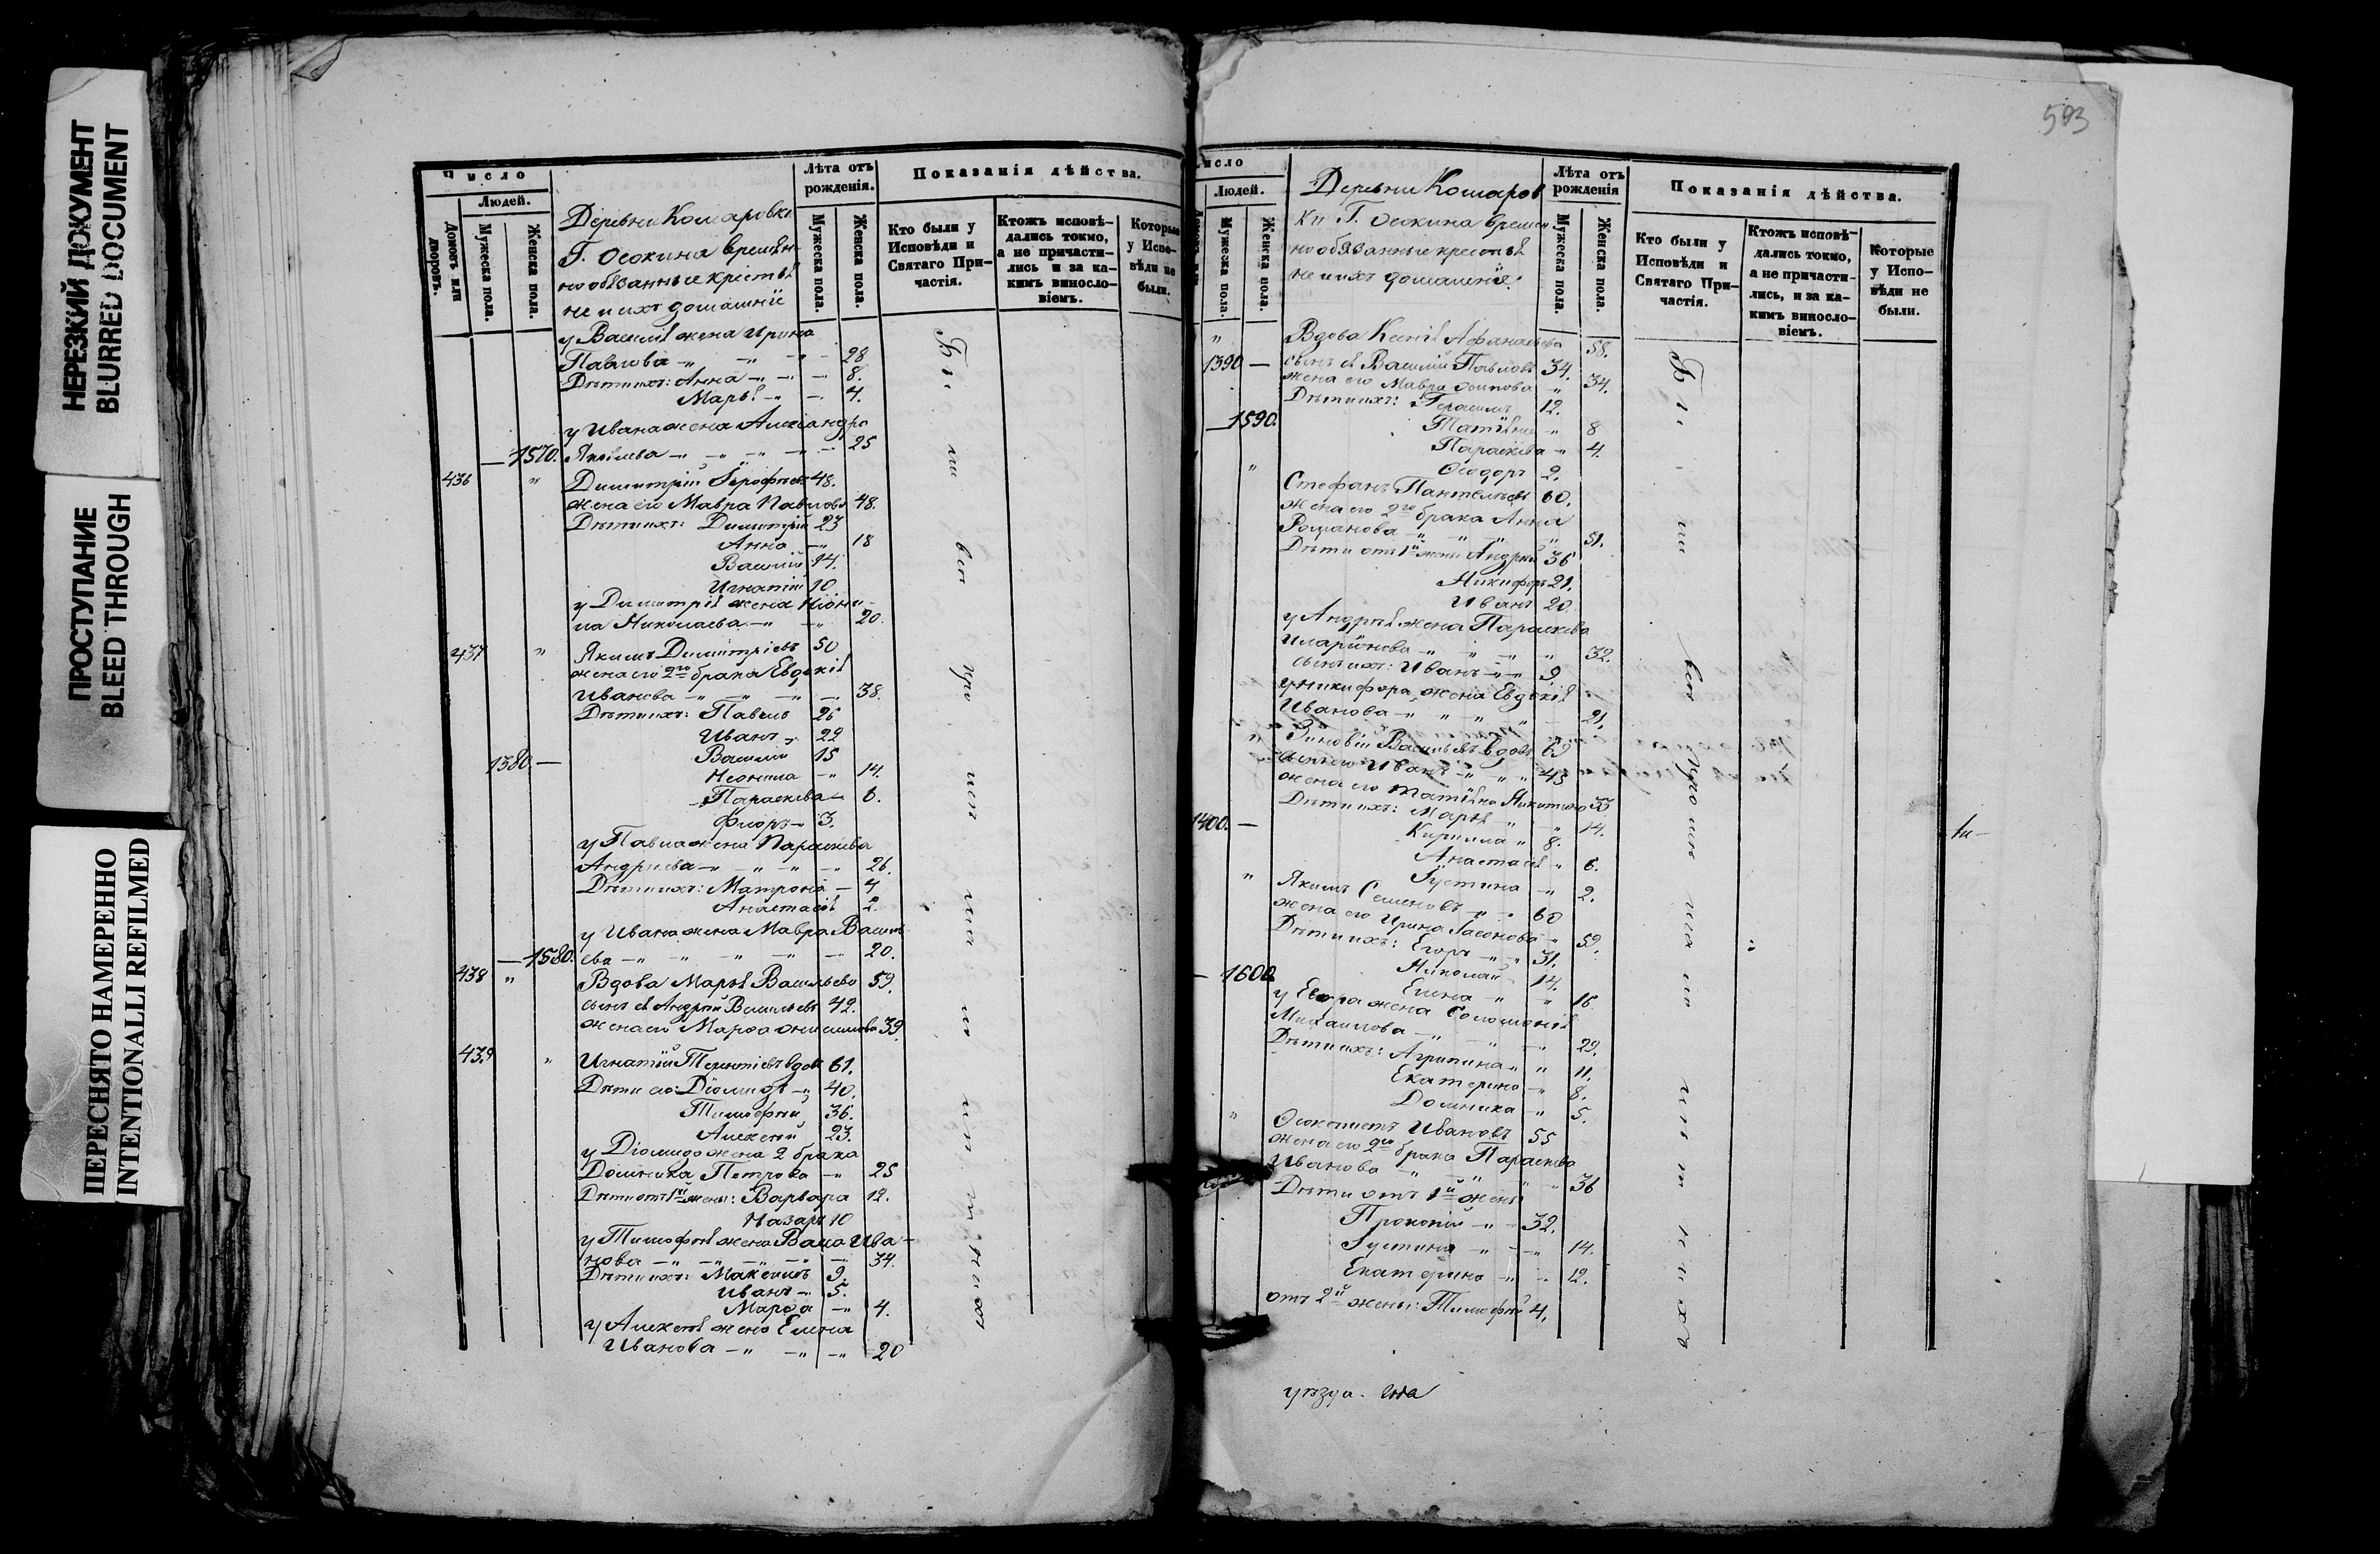 НЕРЕЗКИЙ ДОКУМЕНТ
BLURRED DOCUMENT
ПРОСТУПАНИЕ
BLEED THROUGH
ПЕРЕСНЯТО НАМЕРЕННО
INTENTIONALLI REFILMED
Число
Людей.
Домовъ или дворовъ.
Мужеска пола.
Женска пола.
Деревни Комаровки
Г. Осокина времен-
но обязанные крестья
не и ихъ домашніе
Лѣта отъ рожденія.
Мужеска пола.
Женска пола.
Показанія дѣйства.
Кто были у Исповѣди и Святаго При-частія.
Ктожъ исповѣ-дались токмо, а не причасти-лись и за ка-кимъ винословіемъ.
Которые у Испо-вѣди не были.
у Василія жена Ирина
Павлова 28
Дѣти ихъ: Анна 8.
Марья 4.
у Ивана жена Александра
1570. Яковлева 25
436 " Димитрій Ерофеевъ 48.
жена его Мавра Павлова 48.
Дѣти ихъ: Димитрій 23
Анна 18
Василій 14.
Игнатій 10.
у Димитрія жена
Николаева 20.
437 " Якимъ Димитріевъ 50
жена его 2го брака Евдокія
Иванова 38.
Дѣти ихъ: Павелъ 26
Иванъ 22
1380. — Василій 15
Неонила 14.
Параскева 6.
Флоръ 3.
у Павла жена Параскева
Андреева 26.
Дѣти ихъ: Матрона 4
Анастасія 2.
у Ивана жена Мавра Василь
1580. ева 20.
438 " Вдова Марья Васильева 59.
сынъ ея Андрей Васильевъ 42.
жена его Марѳа Онисимова 39.
439 " Игнатій Терентіевъ вдовъ 61.
Дѣти его: Діомидъ 40.
Тимофей 36.
Алексей 23.
у Діомида жена 2 брака
Домника Петрова 25
Дѣти отъ 1й жены: Варвара 12.
Назаръ 10
у Тимофея жена Васса Ива-
нова 34.
Дѣти ихъ: Максимъ 9.
Иванъ 5.
Марѳа 4.
у Алексея жена Елена
Иванова 20
593
Людей.
Мужеска пола.
Женска пола.
Деревни Комаров
ки Г. Осокина времен
но обязанные крестья
не и ихъ домашніе.
Лѣта отъ рожденія
Мужеска пола.
Женска пола.
Показанія дѣйства.
Кто были у Исповѣди и Святаго При-частія.
Ктожъ исповѣ-дались токмо, а не причасти-лись, и за ка-кимъ винословіемъ.
Которые у Испо-вѣди не были.
" Вдова Ксенія Афанасьева 58.
1390 — сынъ ея Василій Павловъ 34.
жена его Мавра Осипова 34.
Дѣти ихъ: Герасимъ 12.
— 1590. Татьяна 8
Параскева 4.
Ѳеодоръ 2.
" Стефанъ Пантелеевъ 60.
жена его 2го брака Анна
Романова 51.
Дѣти отъ 1й жены Андрей 36
Никифоръ 21.
Иванъ 20.
у Андрея жена Параскева
Иларіонова 32.
сынъ ихъ: Иванъ 9.
у Никифора жена Евдокія
Иванова 21.
" Зиновій Васильевъ вдовъ 69
сынъ его Иванъ 43
жена его Татьяна Никитина 33
Дѣти ихъ: Марья 14.
1400. — Кирилла 8.
Анастасія 6.
Іустина 2.
" Якимъ Семеновъ 60
жена его Ирина Іасонова 59.
Дѣти ихъ: Егоръ 31.
Николай 14.
— 1600. Елена 16
у Егора жена Соломонія
Михаилова 29.
Дѣти ихъ: Агрипина 11.
Екатерина 8.
Домника 5.
" Ѳеоктистъ Ивановъ 55
жена его 2го брака Параскева
Иванова 36
Дѣти отъ 1й жены
Прокопій 32.
Іустина 14.
Екатерина 12.
отъ 2й жены: Тимофей 4.
уѣзда.